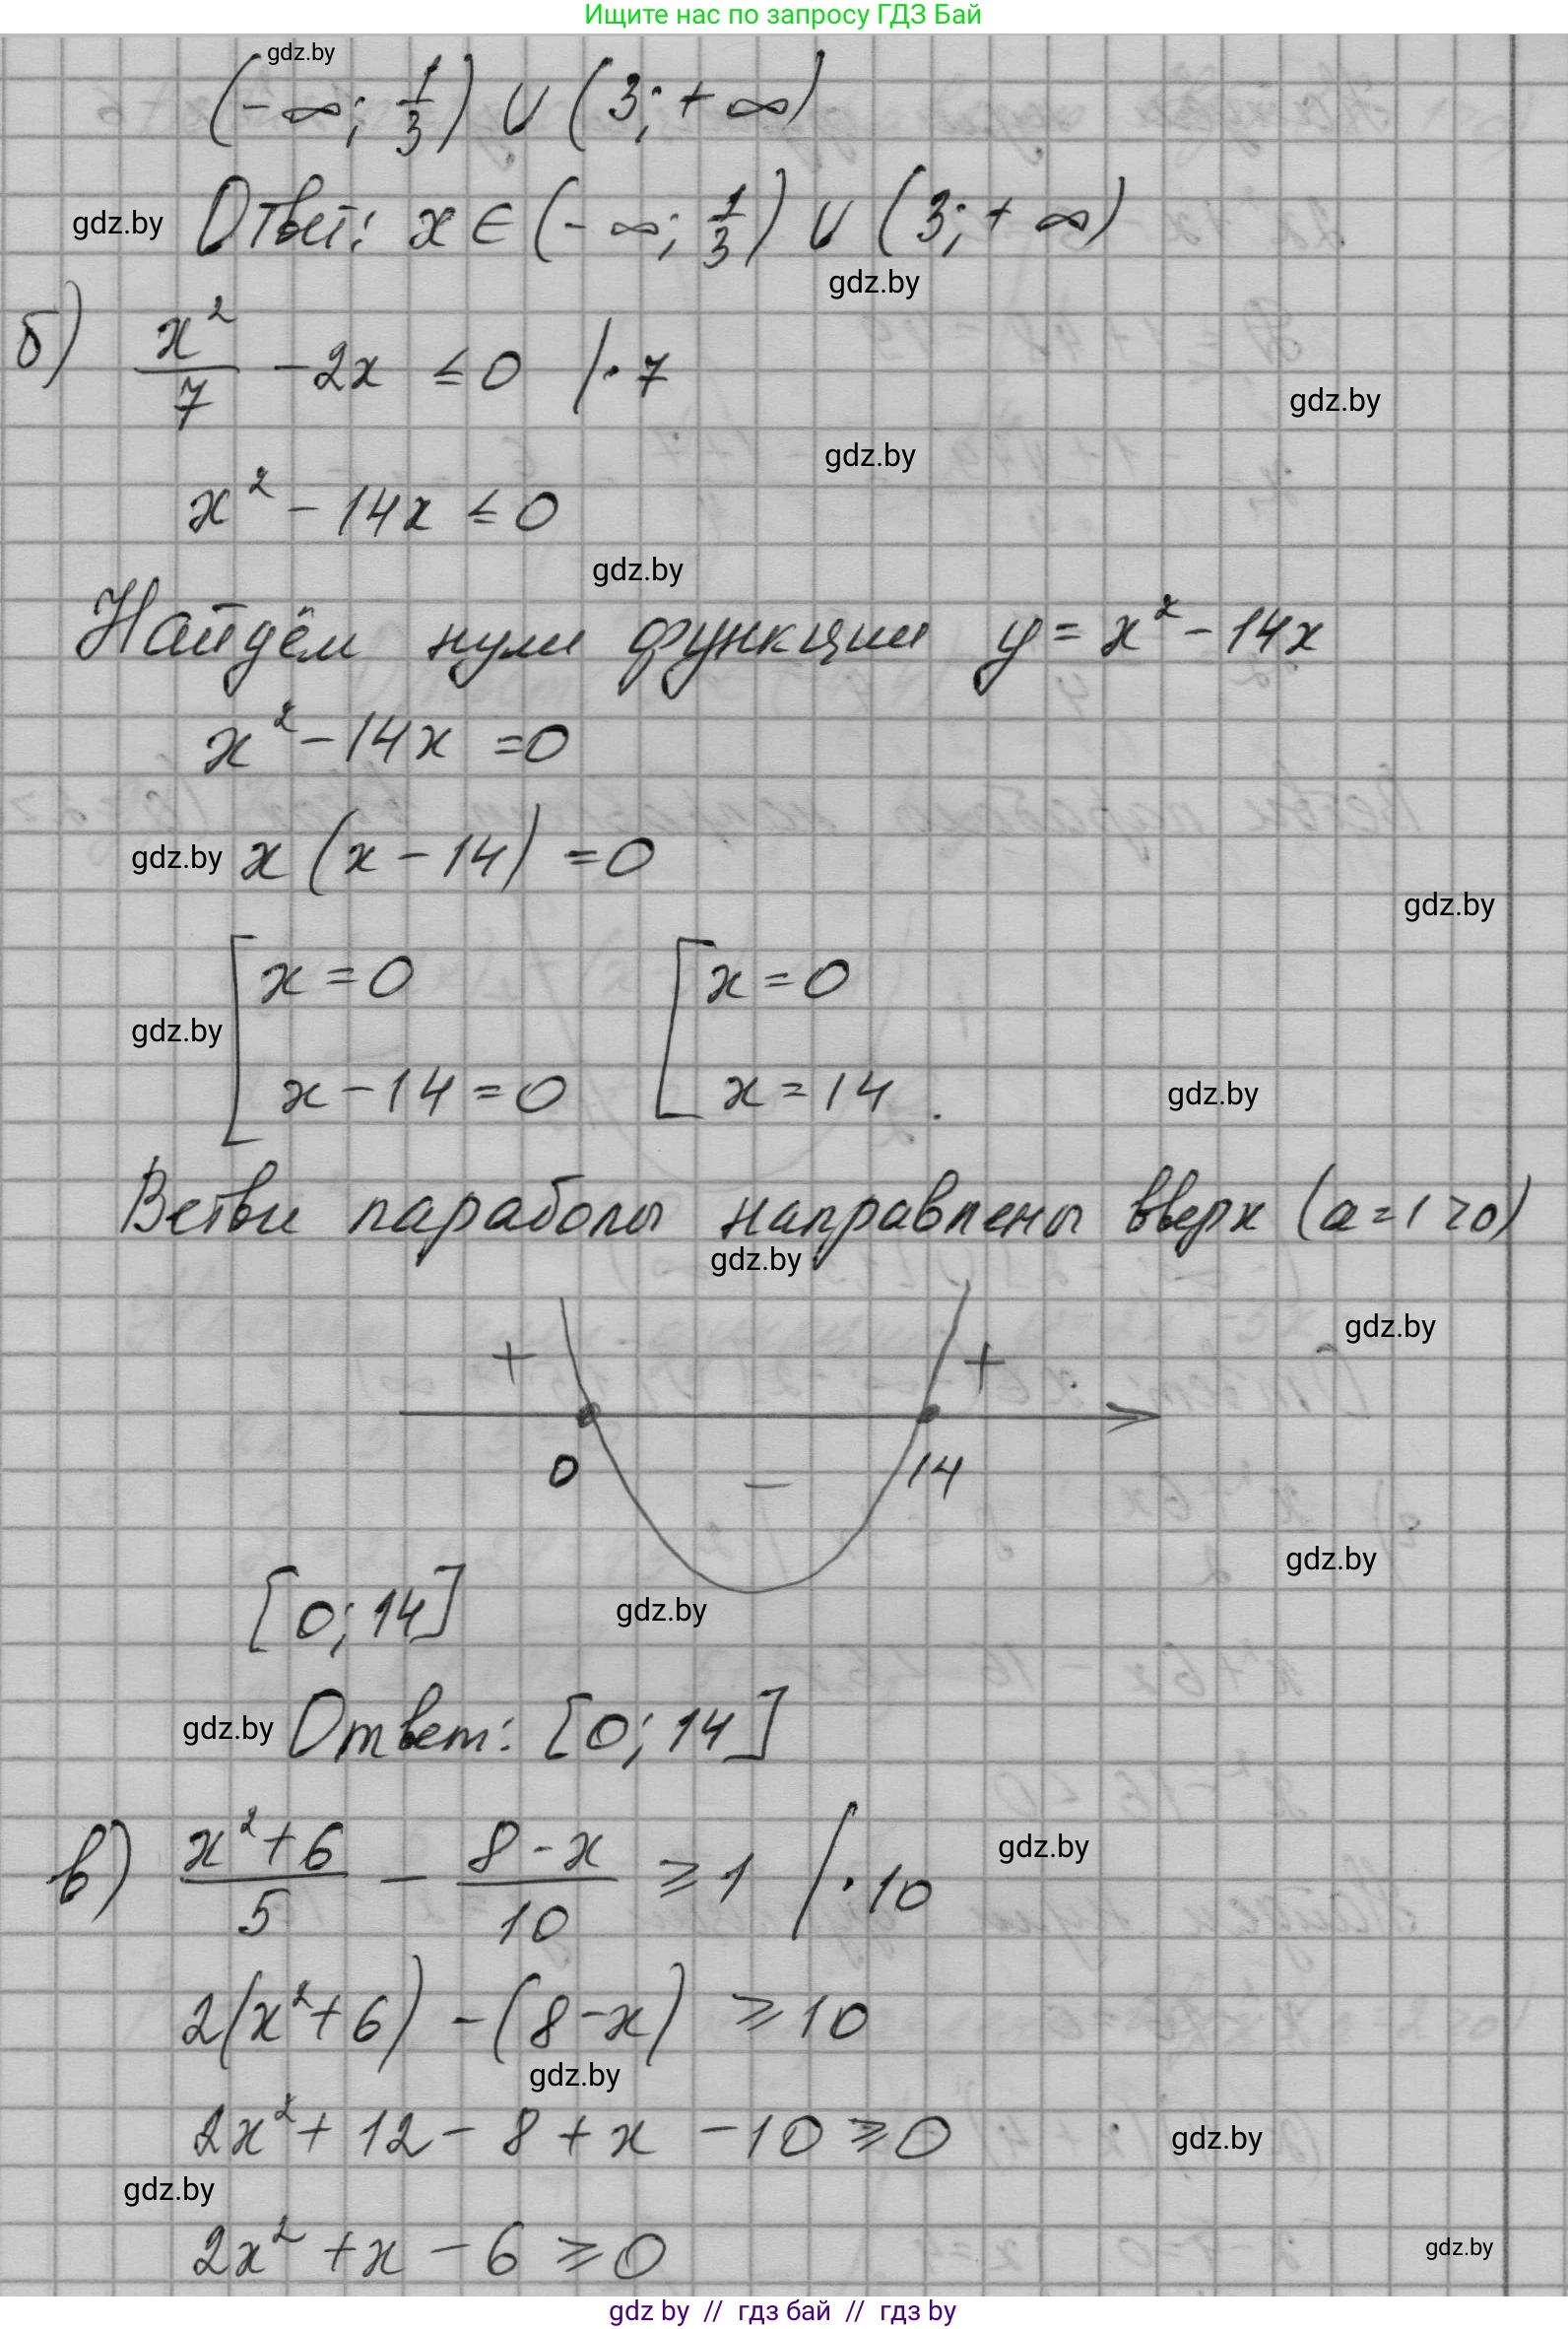 Ищите нас по запросу ГДЗ Бай
gdz.by
(-∞; 1/3) ∪ (3; +∞)
gdz.by Ответ: x ∈ (-∞; 1/3) ∪ (3; +∞)
gdz.by
б) x²/7 - 2x ≤ 0 /·7
gdz.by
gdz.by
x² - 14x ≤ 0
gdz.by
Найдём нули функции y = x² - 14x
x² - 14x = 0
gdz.by x (x - 14) = 0
gdz.by
[ x = 0 [ x = 0
gdz.by
x - 14 = 0 x = 14.
gdz.by
Ветви параболы направлены вверх (a = 1 > 0)
gdz.by
gdz.by
+ +
0 - 14
gdz.by
[0; 14]
gdz.by
gdz.by Ответ: [0; 14]
в) (x² + 6)/5 - (8 - x)/10 ≥ 1 /·10
gdz.by
2(x² + 6) - (8 - x) ≥ 10
gdz.by
2x² + 12 - 8 + x - 10 ≥ 0
gdz.by
gdz.by
2x² + x - 6 ≥ 0
gdz.by
gdz by // гдз бай // гдз by